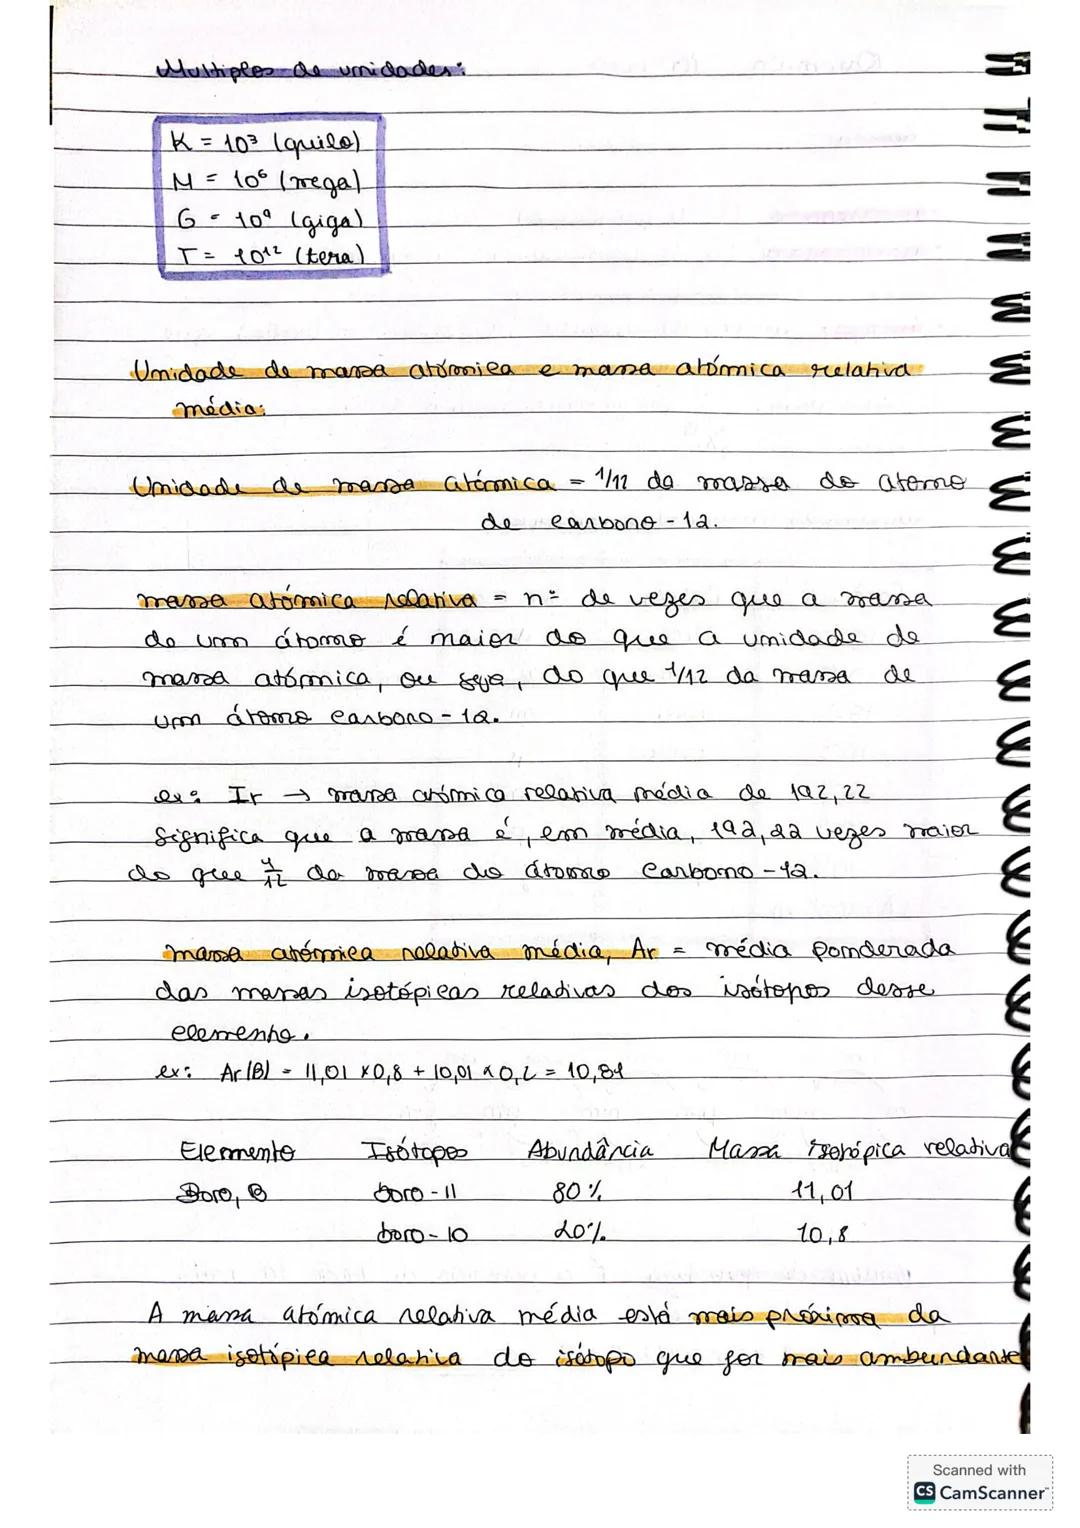 Multiplos de unidades:
K = 10³ (quilo)
M = 10⁶ (mega)
G = 10⁹ (giga)
T = 10¹² (tera)
Unidade de massa atómica e massa atómica relativa
média:
Unidade de massa atómica = 1/12 da massa do atomo
de carbono - 12.
massa atómica relativa = nº de vezes que a massa
de um átomo é maior do que a unidade de
massa atómica, ou seja, do que 1/12 da massa de
um átomo carbono - 12.
ex: Ir → massa atómica relativa média de 192,22
Significa que a massa é, em média, 192,22 vezes maior
do que 1/12 da massa do átomo Carbono - 12.
massa atómica relativa média, Ar = média ponderada
das massas isotópicas relativas dos isótopos desse
elemento.
ex: Ar(B) = 11,01 x 0,8 + 10,01 x 0,2 = 10,81
Elemento Isótopos Abundância Massa isotópica relativa
Boro, B boro - 11 80% 11,01
boro - 10 20% 10,8
A massa atómica relativa média está mais próxima da
massa isotópica relativa do isótopo que for mais ambundante
Scanned with
CS CamScanner